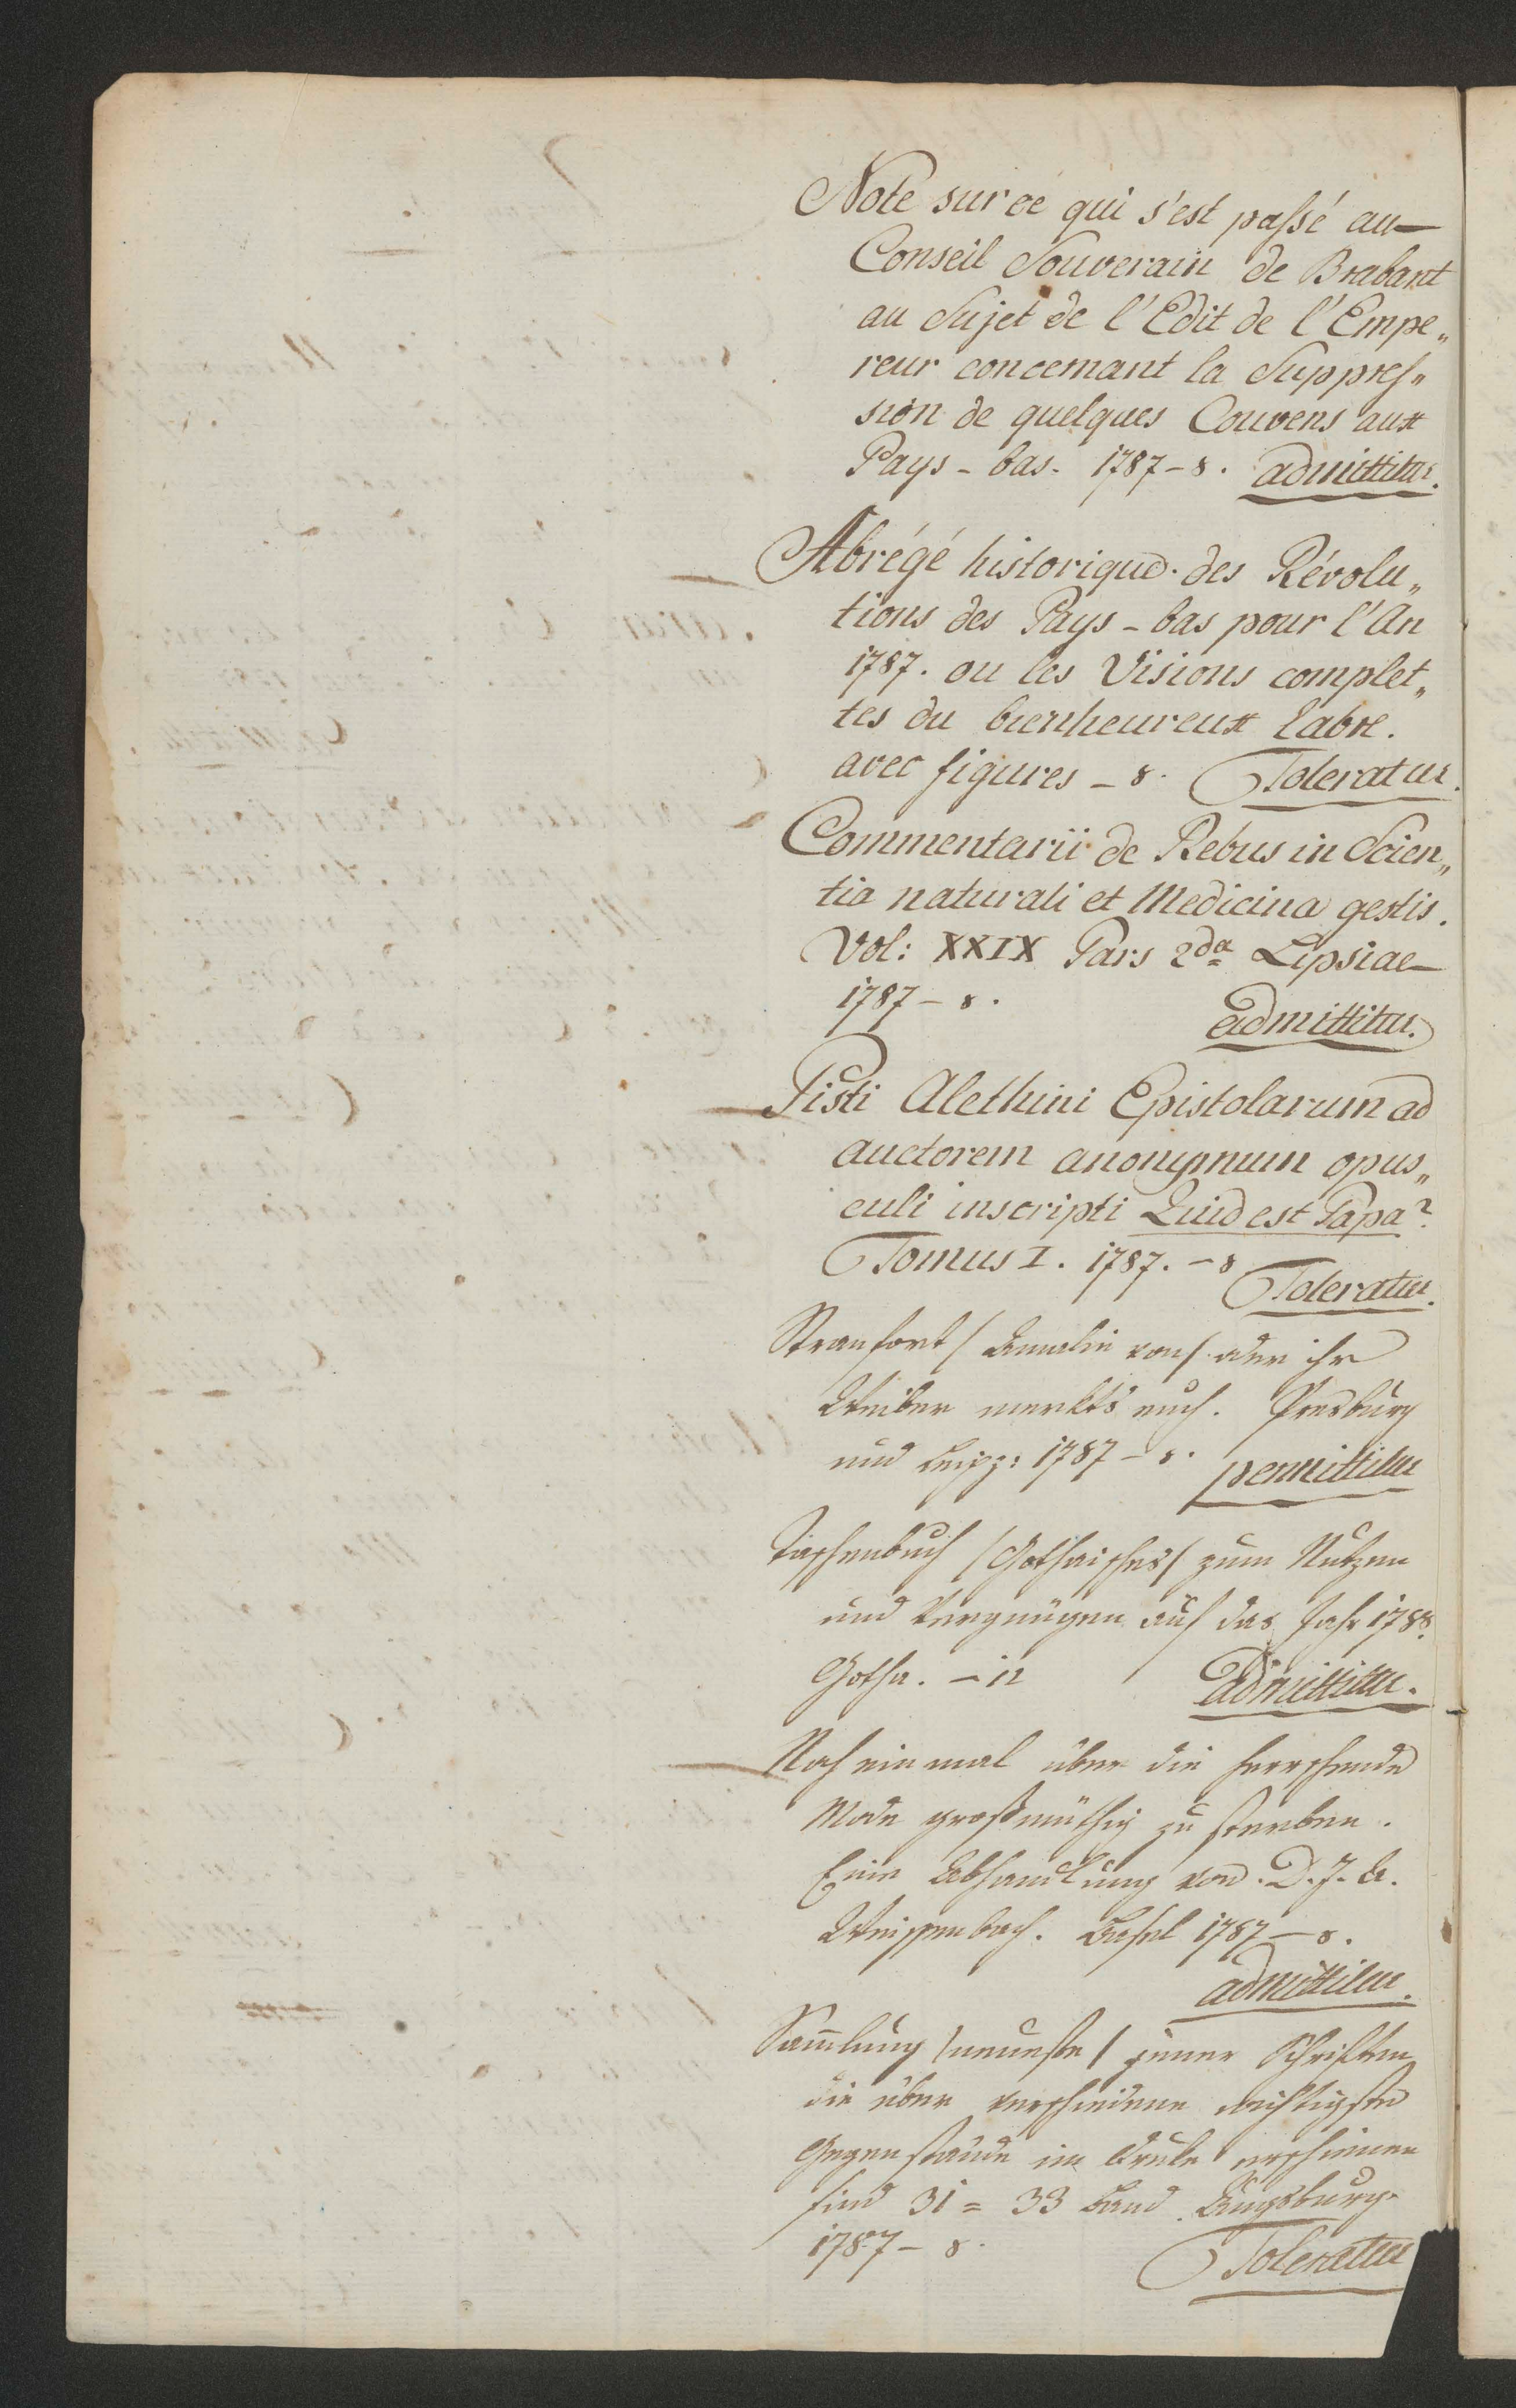 Note sur ce qui s'est passé au
Conseil Souverain de Brabant
au Sujet de l'Edit de l'Empe„
reur concernant la Suppres„
sion de quelques Couvens aux
Pays-bas. 1787 – 8. admittitur.
Abrégé historique des Révolu„
tions des Pays-bas pour l'An
1787. ou les Visions complet„
tes du bienheureux Labre.
avec figures – 8. Toleratur.
Commentarii de Rebus in Scien„
tia naturali et Medicina gestis.
Vol: XXIX Pars 2da Lipsiae
1787 – 8.
admittitur.
Pisti Alethini Epistolarum ad
auctorem anonymum opus„
culi inscripti Quid est Papa?
Tomus I. 1787. – 8
Toleratur.
Stranfort / Amalie von / oder ihr
Weiber merkts euch. Presburg
und Leipz: 1787 – 8. permittitur
Taschenbuch / Gothaisches / zum Nutzen
und Vergnügen auf das Jahr 1788.
Gotha. – 12 admittitur.
Noch ein mal über die herrschende
Mode großmüthig zu sterben.
Eine Abhandlung von D. J. A.
Weissenbach. Basel 1787 – 8.
admittitur.
Sammlung / neueste / jener Schriften
die über verschiedene wichtigste
Gegenstände im Druke erschienen
sind 31 = 33 Band. Augsburg
1787 – 8.
Toleratur